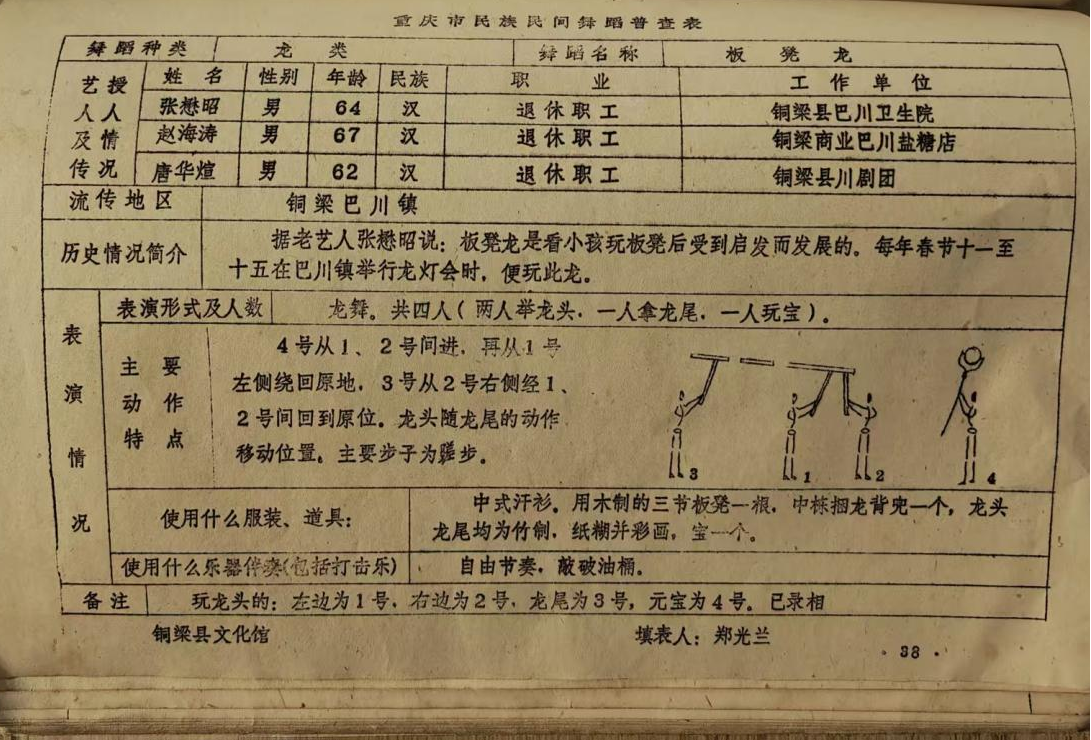 重庆市民族民间舞蹈普查表
舞蹈种类 龙类 舞蹈名称 板凳龙
艺授 姓名 性别 年龄 民族 职业 工作单位
人人 张懋昭 男 64 汉 退休职工 铜梁县巴川卫生院
及情 赵海涛 男 67 汉 退休职工 铜梁商业巴川盐糖店
传况 唐华煊 男 62 汉 退休职工 铜梁县川剧团
流传地区 铜梁巴川镇
历史情况简介 据老艺人张懋昭说：板凳龙是看小孩玩板凳后受到启发而发展的。每年春节十一至
十五在巴川镇举行龙灯会时，便玩此龙。
表演情况
表演形式及人数 龙舞。共四人（两人举龙头，一人拿龙尾，一人玩宝）。
主要
动作
特点
4号从1、2号间进，再从1号
左侧绕回原地，3号从2号右侧经1、
2号间回到原位。龙头随龙尾的动作
移动位置。主要步子为蹉步。
3 1 2 4
使用什么服装、道具： 中式汗衫。用木制的三节板凳一根，中捆龙背兜一个，龙头
龙尾均为竹制，纸糊并彩画，宝一个。
使用什么乐器伴奏(包括打击乐) 自由节奏，敲破油桶。
备注 玩龙头的：左边为1号，右边为2号，龙尾为3号，元宝为4号。已录相
铜梁县文化馆 填表人：郑光兰
·38·